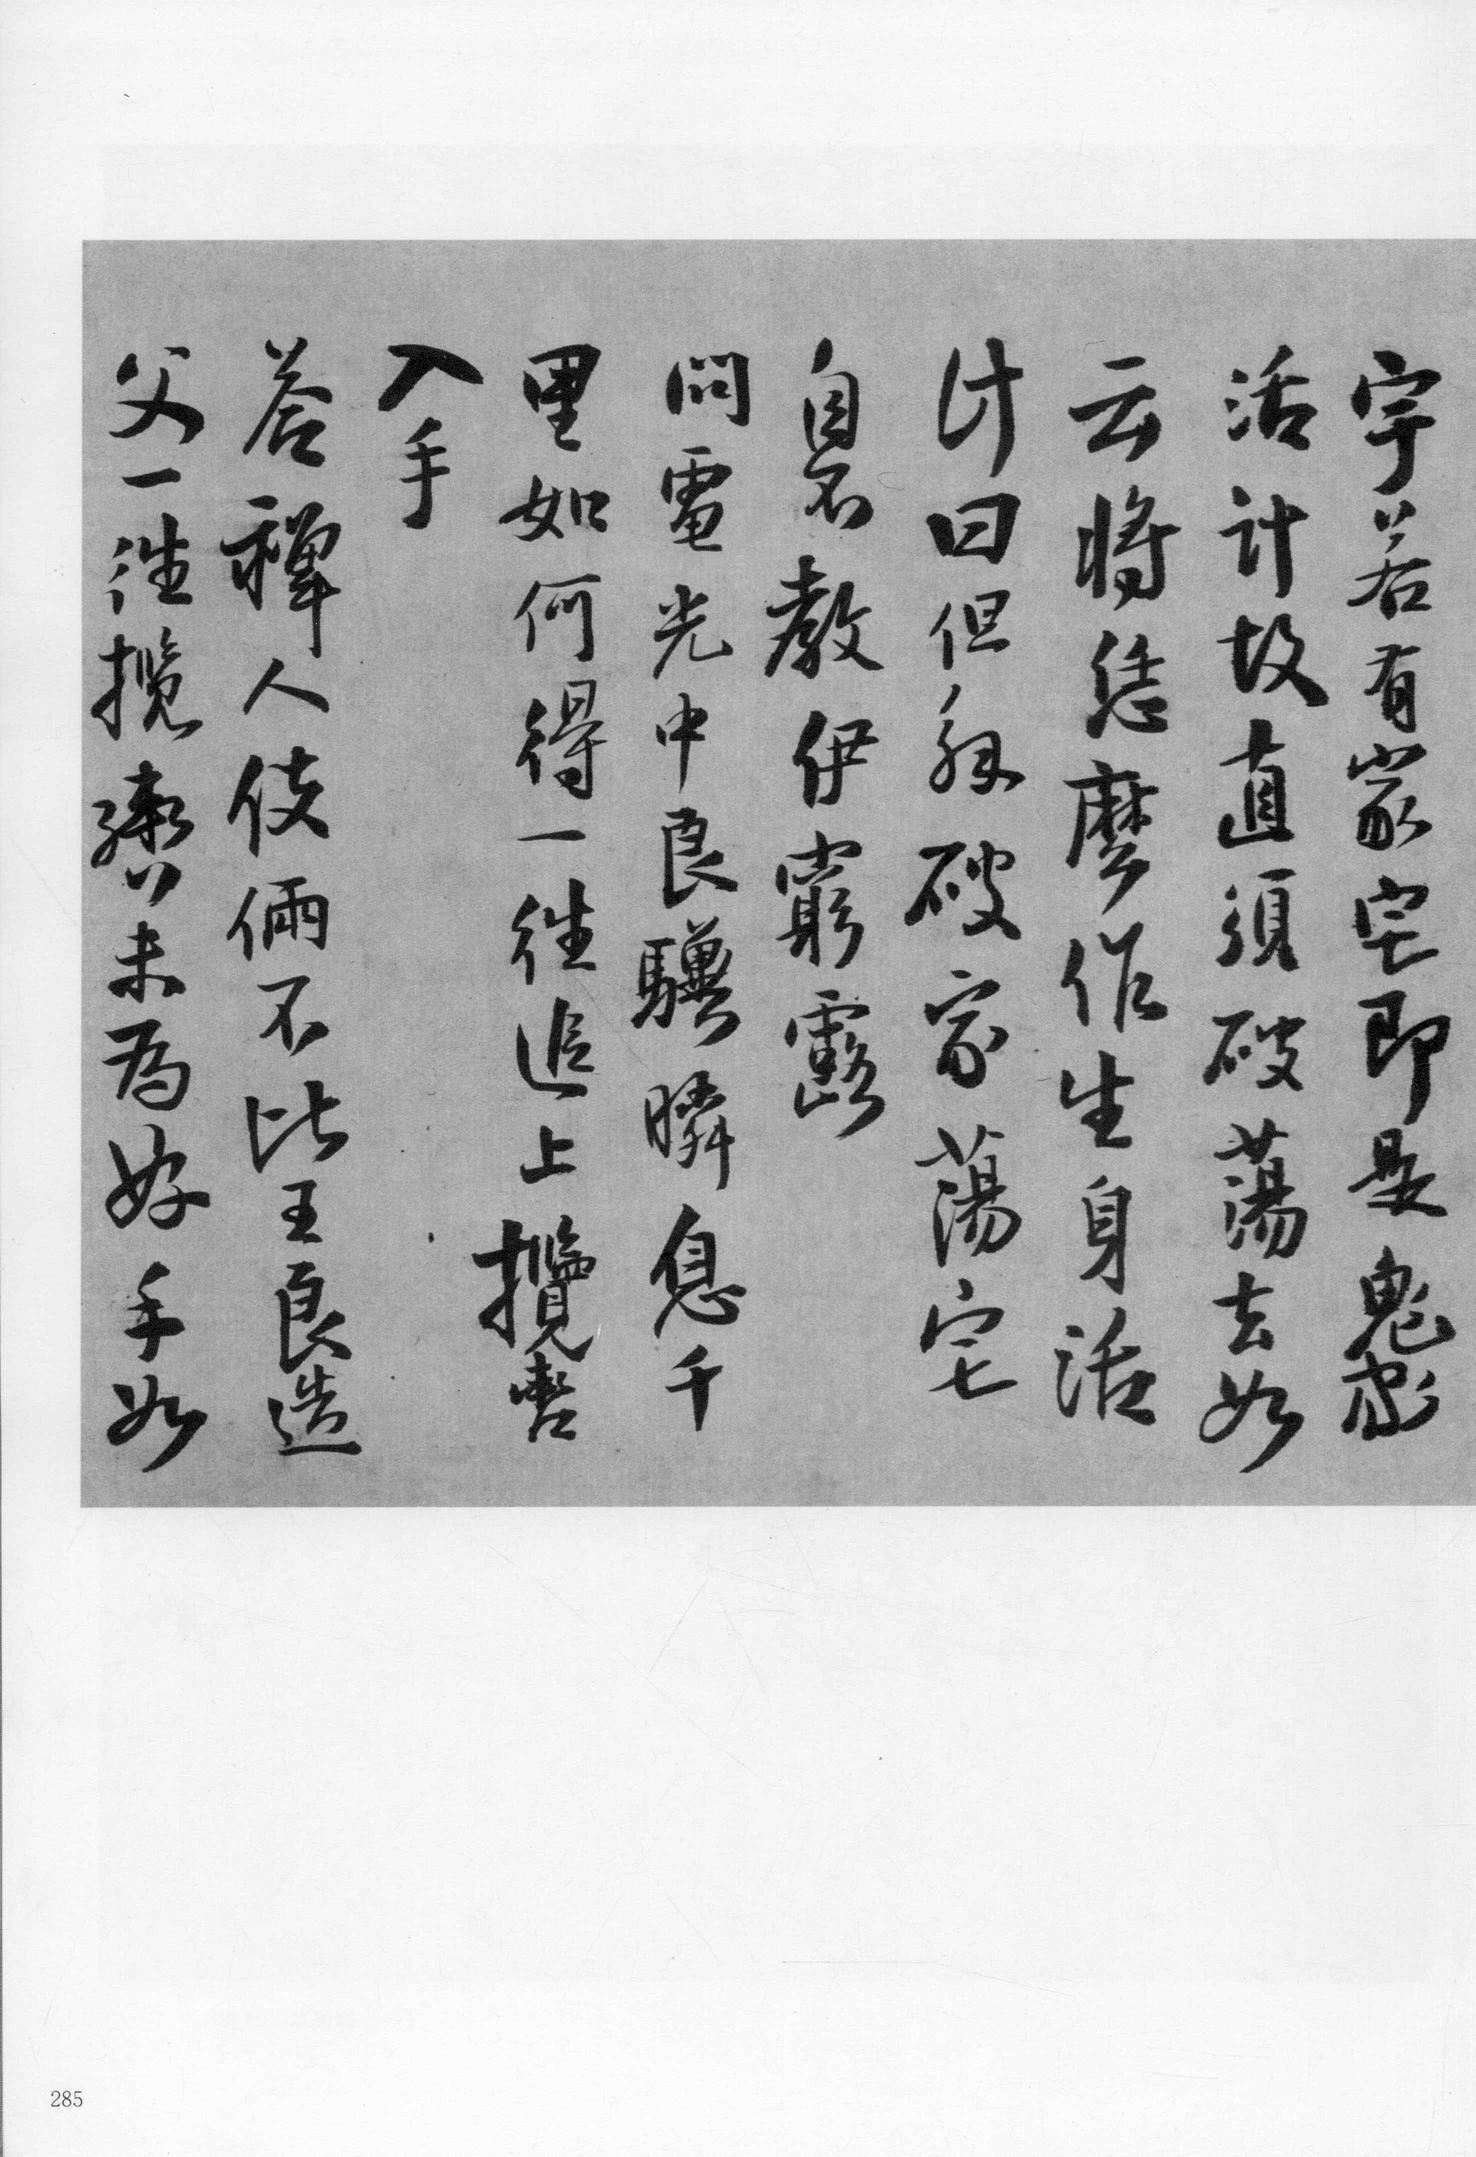 宇若有家宅即是鬼家
活計故直須破蕩去如
云將恁麼作生身活
計曰但知破家蕩宅
自不教伊窮露
問電光中良驥瞬息千
里如何得一往追上攬轡
入手
荅禪人伎倆不比王良造
父一往攬轡未為好手如
285